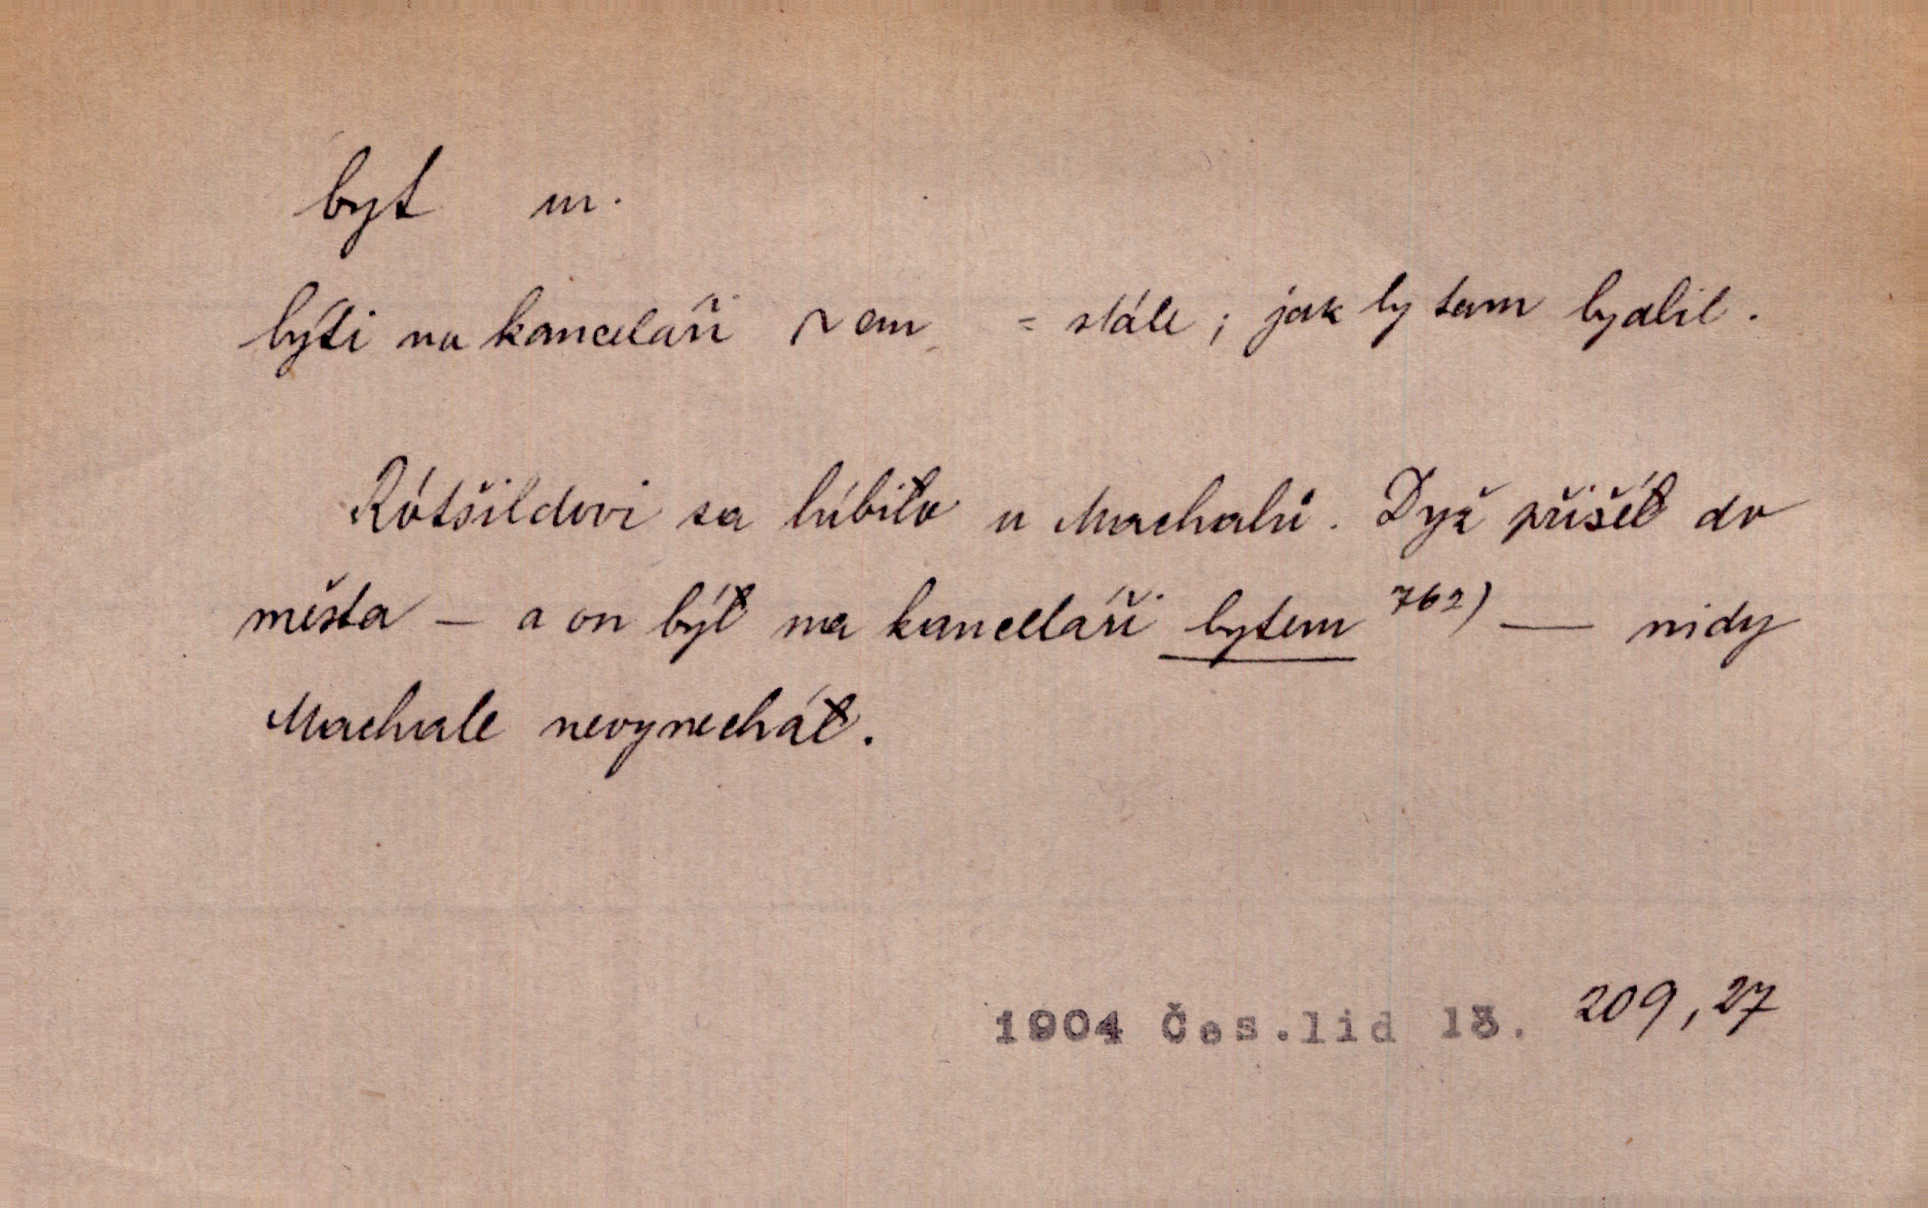 byt m.
býti na kanceláři ~em = stále; jak by tam bydlil.
Rótšildovi sa lúbiło u Machalů. Dyž přišéł do
města – a on býł na kanceláři bytem 762) — nidy
Machale nevynecháł.
1904 Čes.lid 13. 209,27